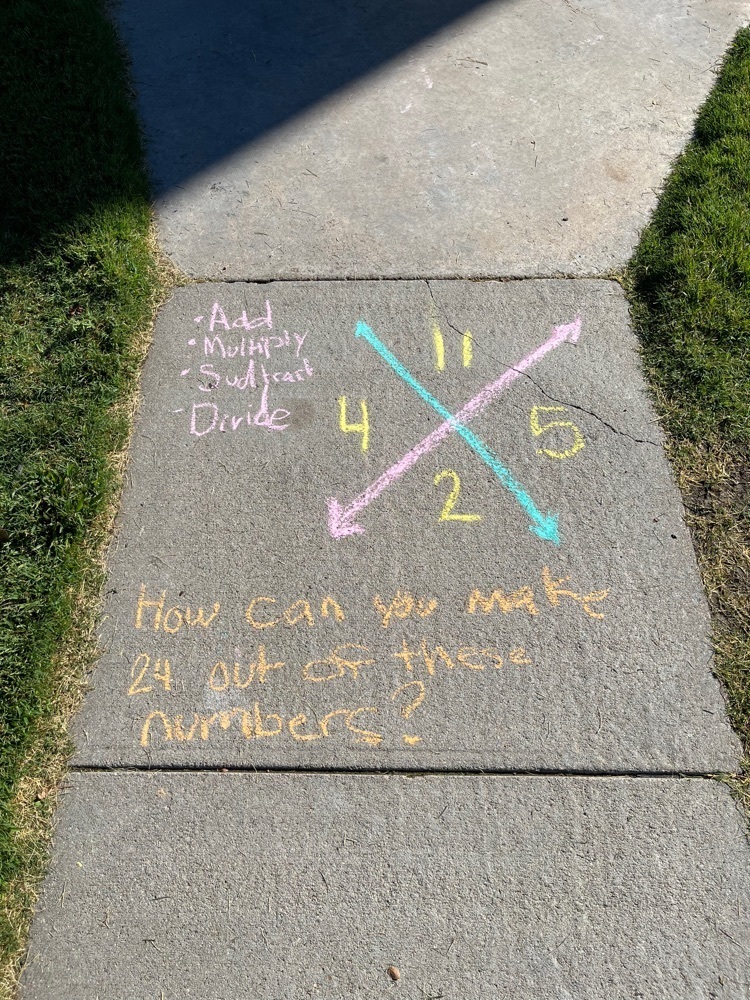 · Add
· Multiply
· Sudtract
· Divide
11
4
5
2
How can you make
24 out of these
numbers?